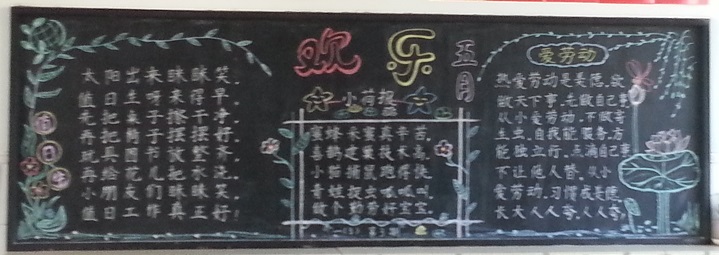 欢乐
五月
小荷报
值日生
太阳出来眯眯笑,
值日生呀来得早。
先把桌子擦干净,
再把椅子摆摆好。
玩具图书放整齐,
再给花儿把水浇。
小朋友们眯眯笑,
值日工作真正好!
蜜蜂采蜜真辛苦,
喜鹊建巢技术高,
小猫捕鼠跑得快
青蛙捉虫呱呱叫,
做个勤劳好宝宝
爱劳动
热爱劳动是美德,欲
做天下事,先做自己事
从小爱劳动,不做寄
生虫,自我能服务,方
能独立行,点滴自己事
不让他人替,从小
爱劳动,习惯成美德,
长大人人夸,人人夸